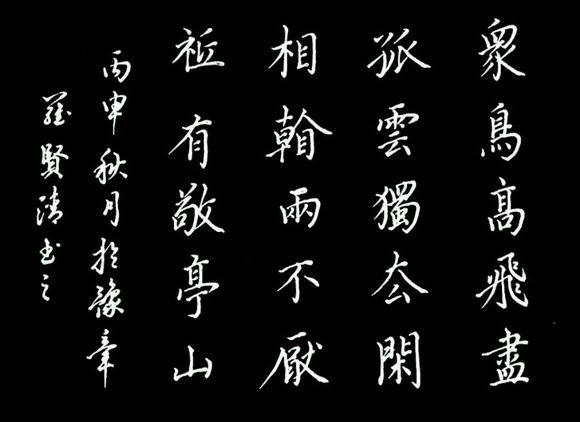 衆鳥高飛盡
孤雲獨去閑
相看兩不厭
祗有敬亭山
丙申秋月於豫章
羅賢清书之